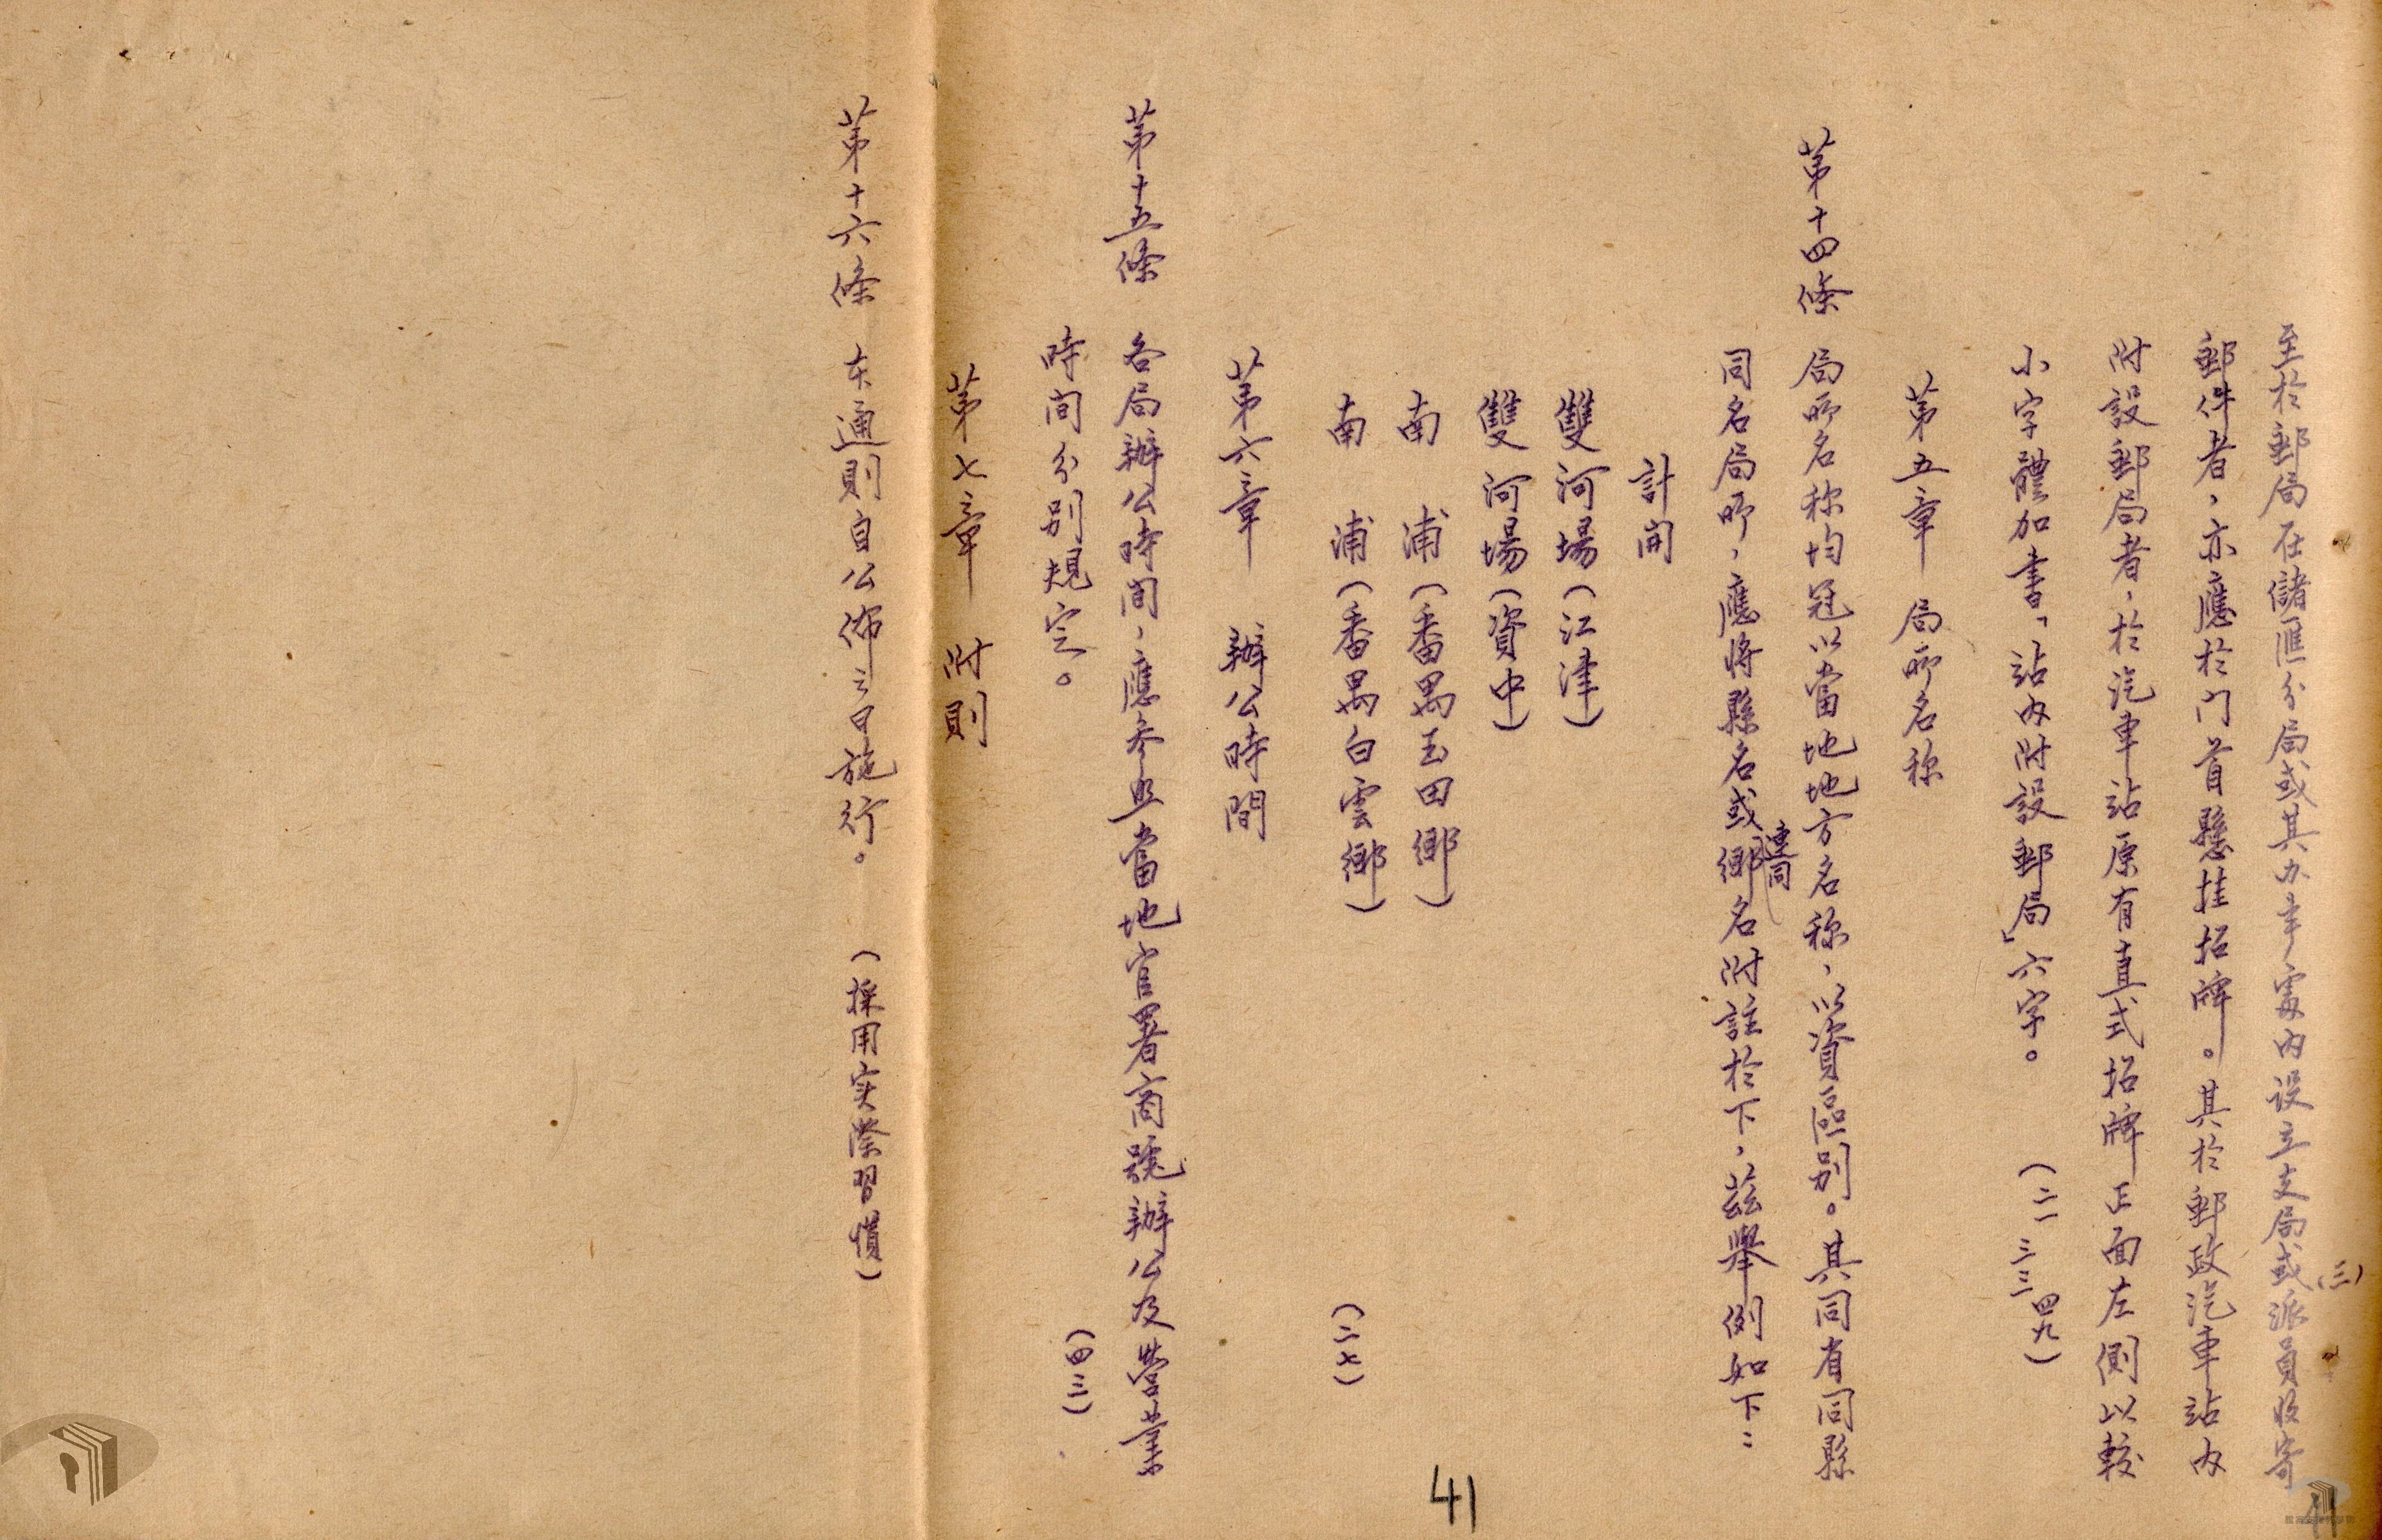 至於郵局在儲匯分局或其办事處內設立支局或派員收寄
(三)
郵件者，亦應於门首懸挂招牌。其於郵政汽車站內
附設郵局者，於汽車站原有直式招牌正面左側以較
小字體加書「站內附設郵局」六字。 (二一 三三 四九)
第五章 局所名称
第十四條 局所名称均冠以當地地方名称，以資區别。其同省同縣
同名局所，應将縣名或連同鄉名附註於下，茲舉例如下：
計開
雙河場(江津)
雙河場(資中)
南浦(番禺玉田鄉)
南浦(番禺白雲鄉) (二七)
第六章 辦公時間
第十五條 各局辦公時间，應參照當地官署商號辦公及營業
時间分别規定。 (四三)
第七章 附則
第十六條 本通則自公佈之日施行。 (採用实際習慣)
41